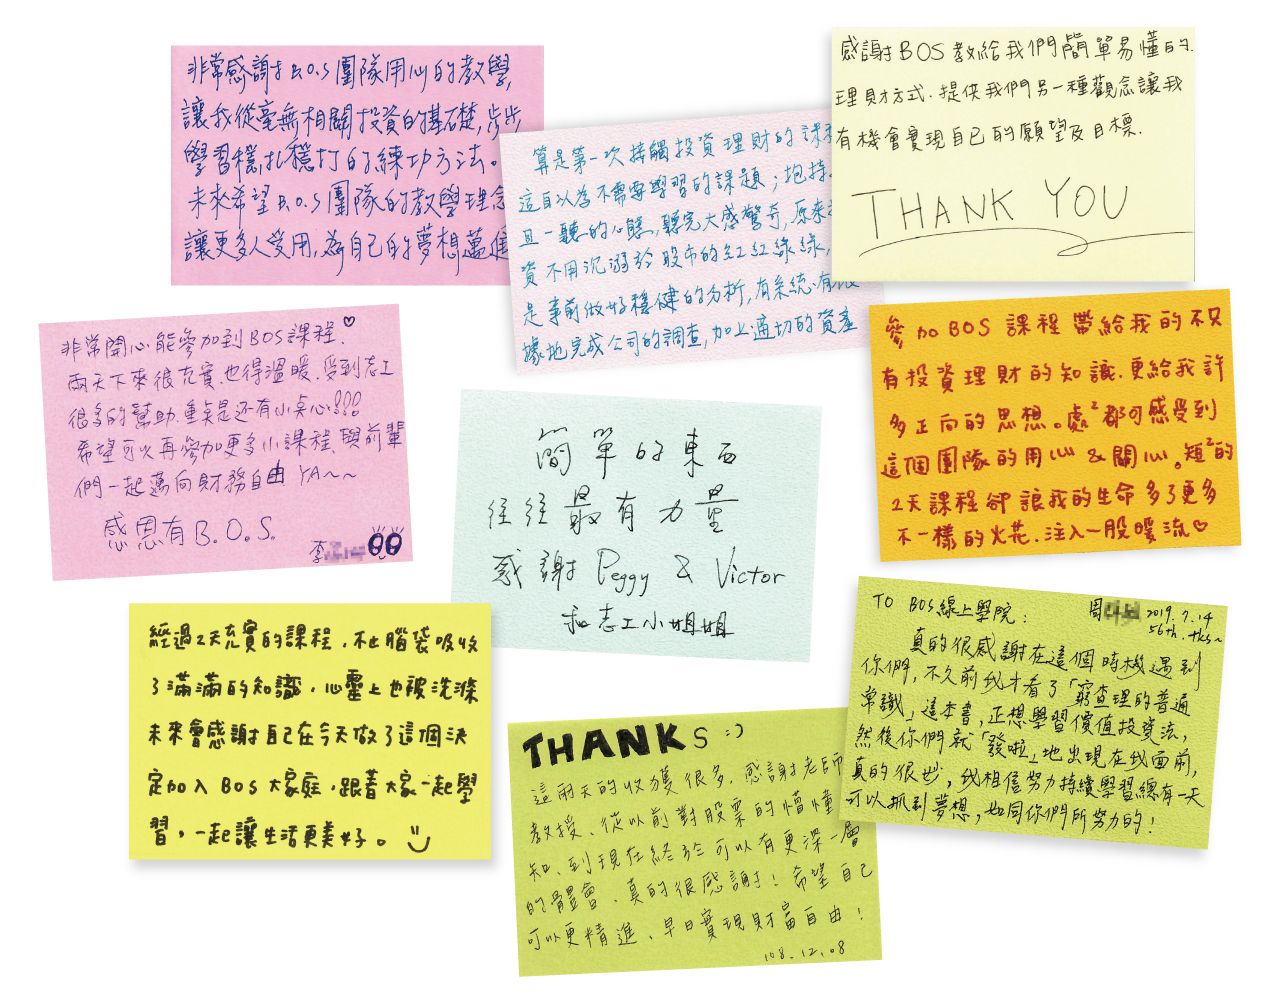 非常感謝B.O.S團隊用心的教學,
讓我從毫無相關投資的基礎,步步
學習穩扎穩打的練功方法。
未來希望B.O.S團隊的教學理念
讓更多人受用,為自己的夢想邁進
算是第一次接觸投資理財的課程
這自以為不需要學習的課題；抱持
且一聽的心態,聽完大感驚奇,原來
資不用沉溺於股市的紅紅綠綠,
是事前做好穩健的分析,有系統有
據地完成公司的調查,加上適切的資產
感謝BOS教給我們簡單易懂的
理財方式.提供我們另一種觀念讓我
有機會實現自己的願望及目標.
THANK YOU
非常開心能參加到BOS課程.♡
兩天下來很充實.也得溫暖.受到志工
很多的幫助.重點是还有小点心!!!
希望可以再參加更多小課程、與前輩
們一起邁向財務自由 YA~~
感恩有B.O.S.
李
簡單的東西
往往最有力量
感謝 Peggy & Victor
和志工小姐姐
參加BOS課程帶給我的不只
有投資理財的知識.更給我許
多正向的思想。處²都可感受到
這個團隊的用心&關心。短²的
2天課程卻讓我的生命多了更多
不一樣的火花.注入一股暖流♡
經過2天充實的課程，不止腦袋吸收
了滿滿的知識，心靈上也被洗滌
未來會感謝自己在今天做了這個決
定加入BOS大家庭，跟著大家一起學
習，一起讓生活更美好。
THANKS :)
這兩天的收獲很多.感謝老師
教授、從以前對股票的懵懂
知、到現在終於可以有更深一層
的體會、真的很感謝！希望自己
可以更精進、早日實現財富自由！
108.12.08
TO BOS線上學院：
周
2019.7.14
56th.tks~
真的很感謝在這個時機遇到
你們，不久前我才看了「窮查理的普通
常識」這本書，正想學習價值投資法，
然後你們就「發啦」地出現在我面前，
真的很妙，我相信努力持續學習總有一天
可以抓到夢想，如同你們所努力的！